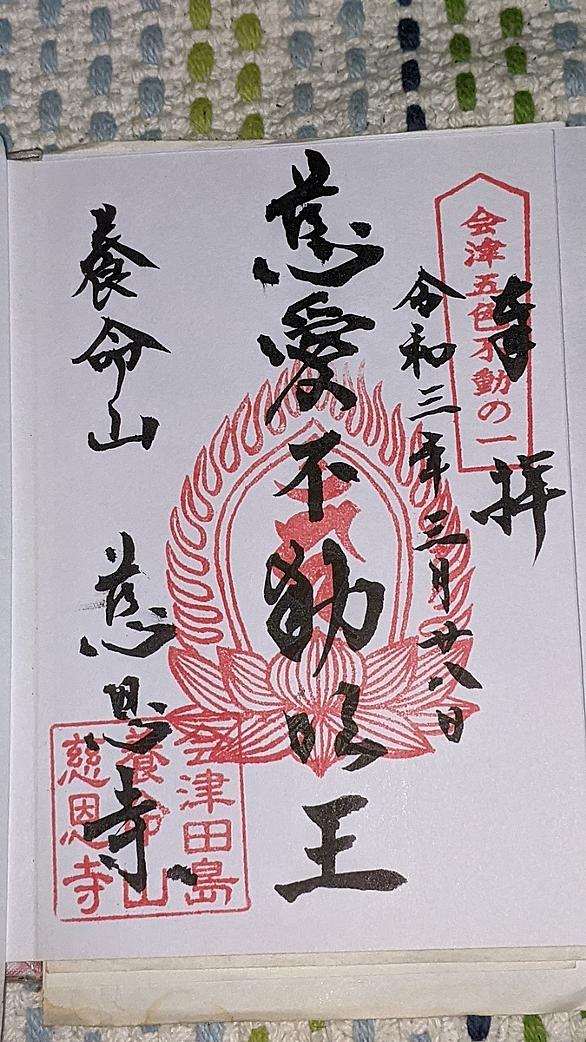 奉拝
会津五色不動の一
令和三年三月廿八日
慈愛不動明王
養命山
慈恩寺
会津田島
養命山
慈恩寺